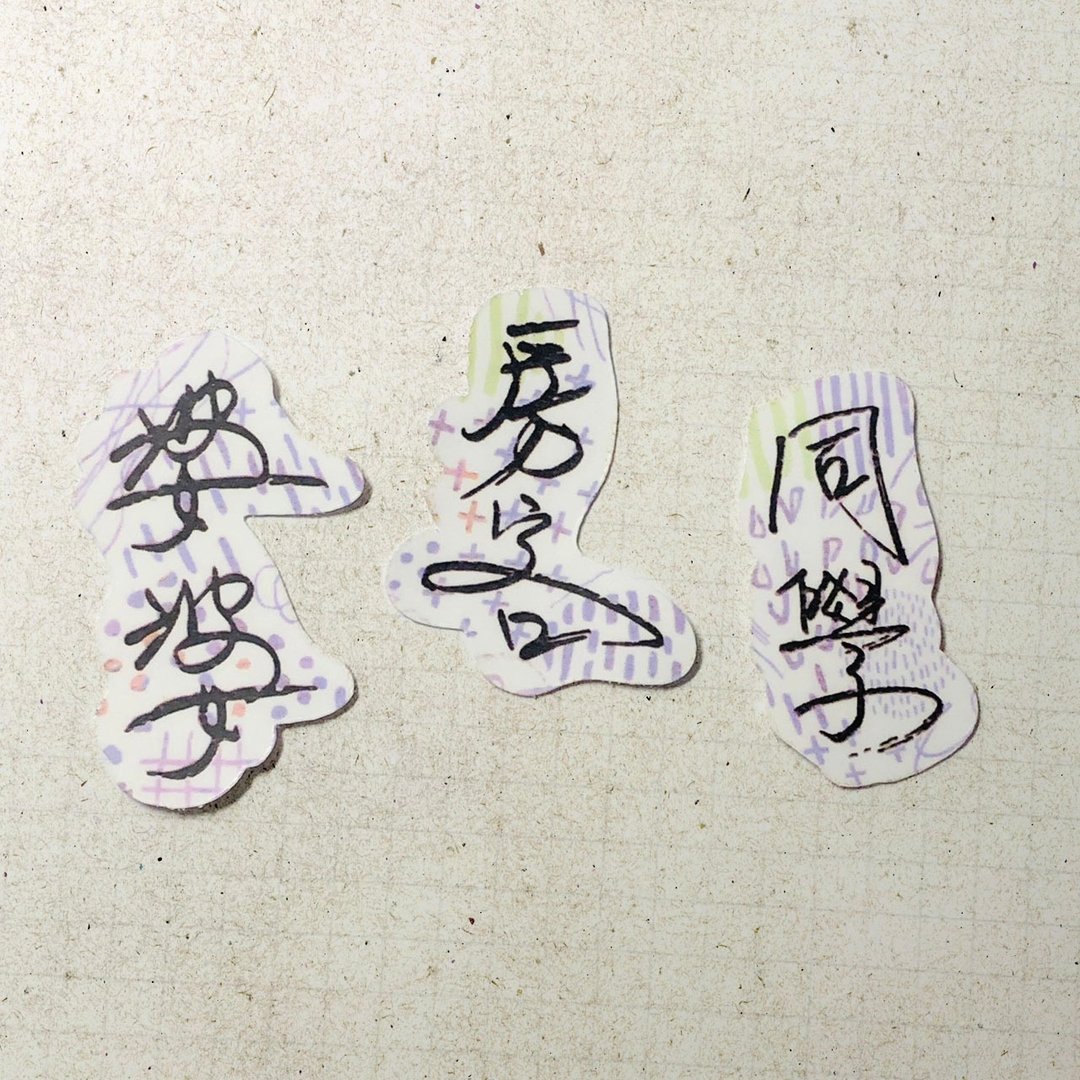 婆婆
房客
同學